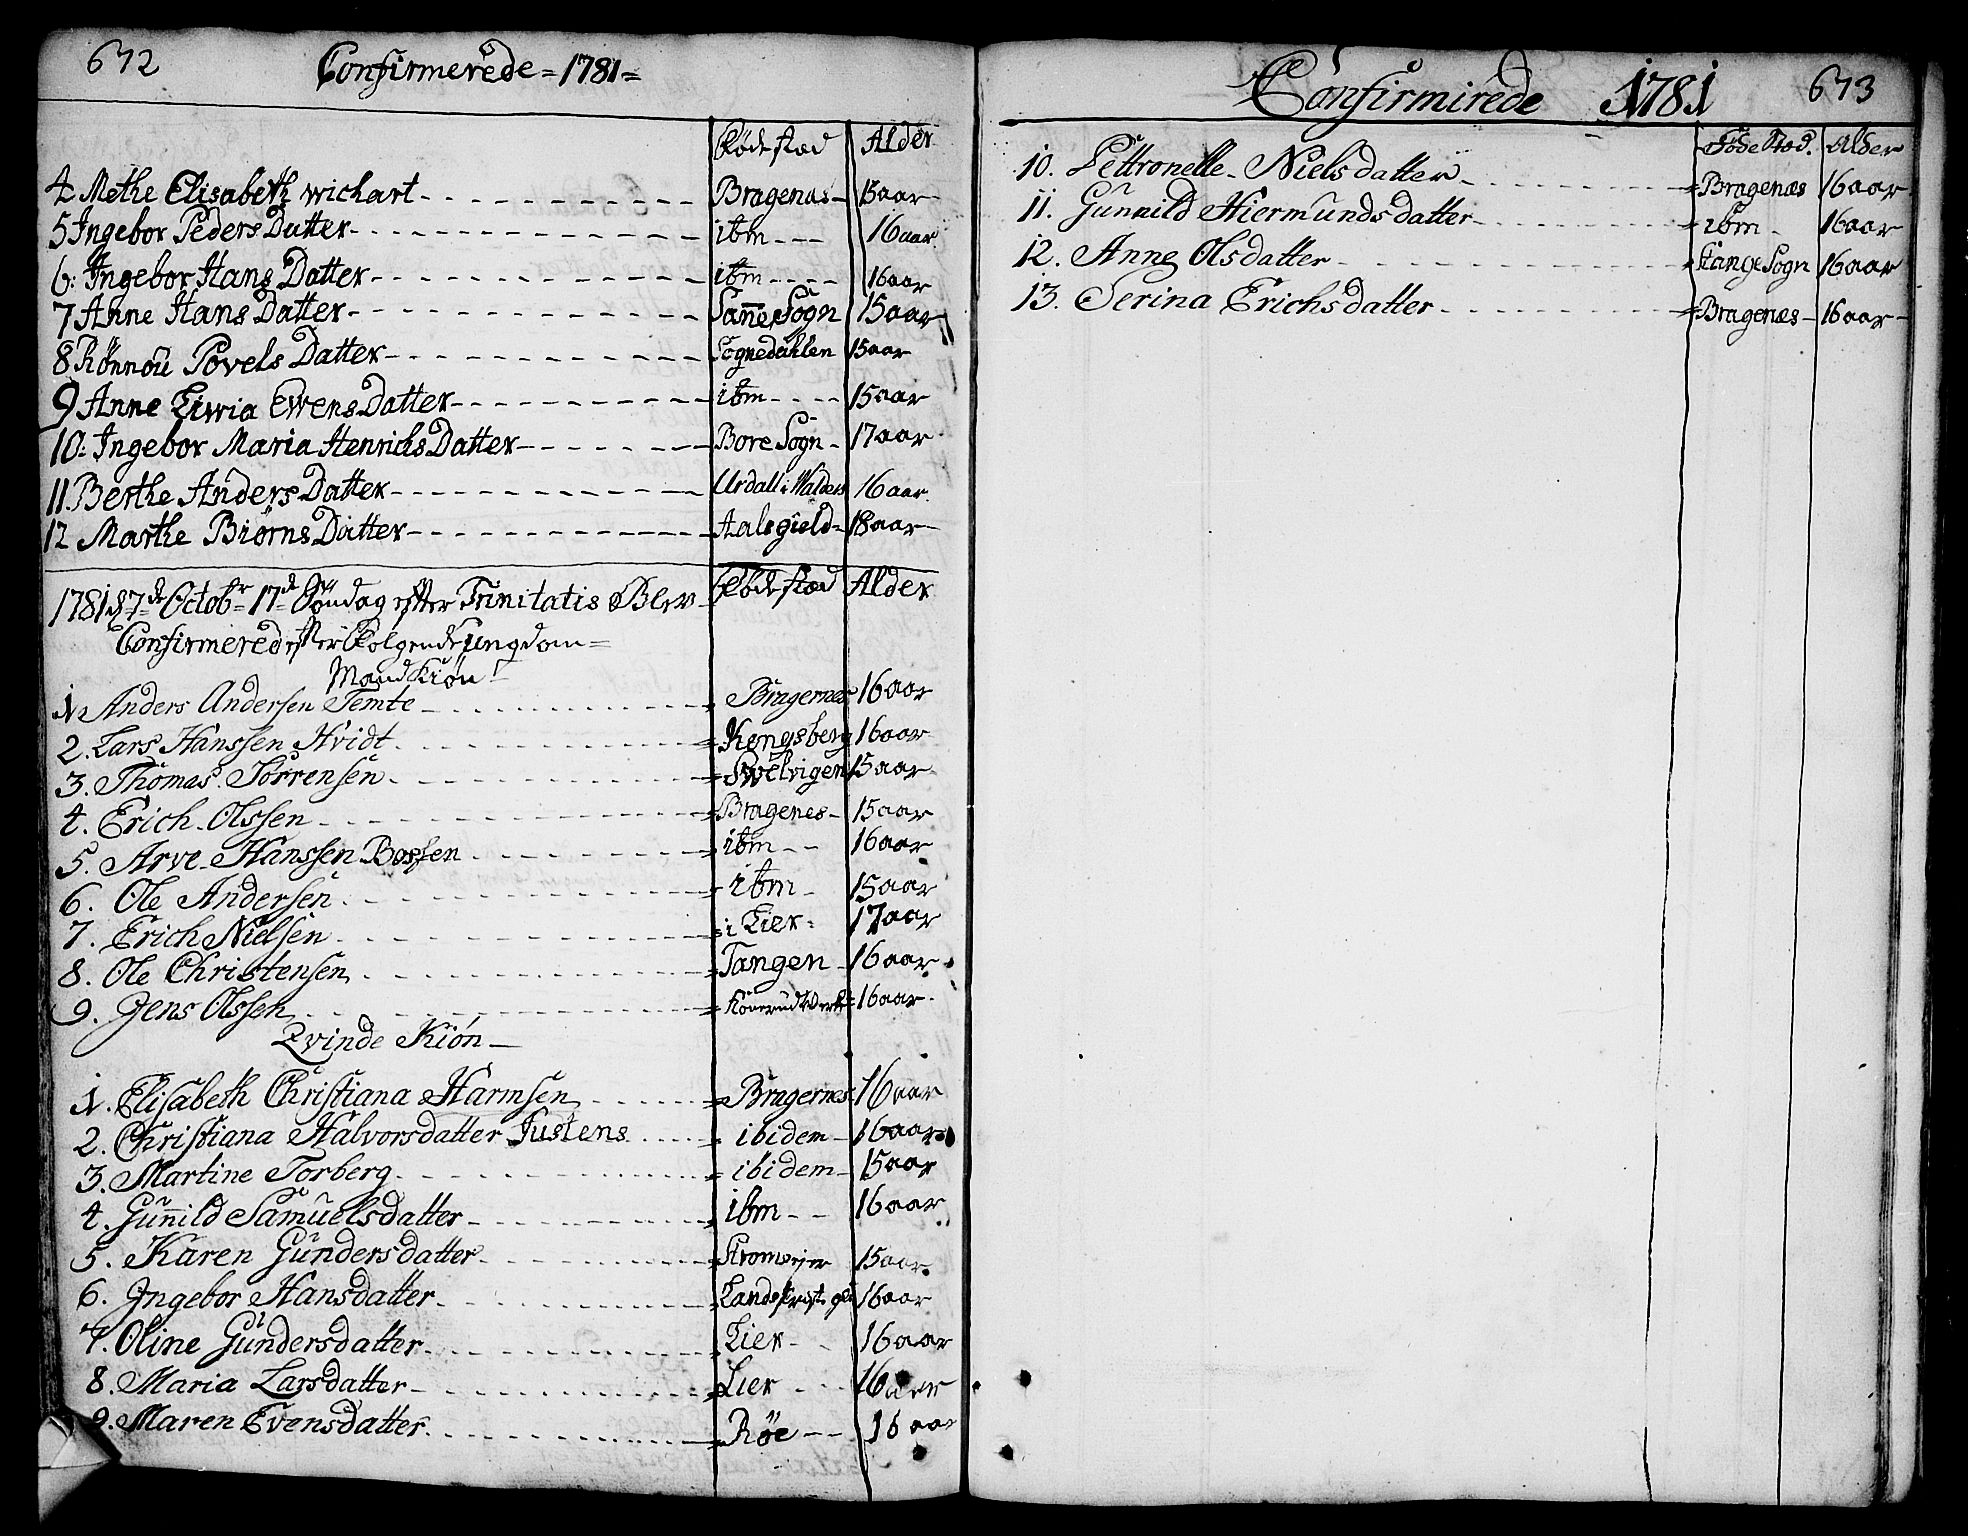 672 Confirmerede = 1781 =
Fødestæd Alder
4 Methe Elisabeth wichart Bragenæs 15 aar
5 Ingebor Peders Datter ibm 16 aar
6: Ingebor Hans Datter ibm 16 aar
7 Anne Hans Datter Sanne Sogn 15 aar
8 Rønnou Povels Datter Sognedahlen 15 aar
9 Anne Liwia Ewens Datter ibm 15 aar
10: Ingebor Maria Henrichs Datter Bore Sogn 17 aar
11. Berthe Anders Datter Urdall i Walders 16 aar
12 Marthe Biørns Datter Aals gield 18 aar
1781 d 7de Octobr 17de Søndag efter Trinitatis Blev Fødestæd Alder
Confirmered efter Følgende Ungdom =
Mand Kiøn
1. Anders Andersen Temte Bragernes 16 aar
2. Lars Hanssen Hvidt Kongsberg 16 aar
3. Thomas Sørrensen Swelvigen 15 aar
4. Erich Olssen Bragenes 15 aar
5. Arve Hanssen Bossen ibm 16 aar
6. Ole Andersen ibm 15 aar
7. Erich Nielsen i Lier 17 aar
8. Ole Christensen Tangen 16 aar
9. Jens Olssen 16 aar
Qvinde Kiøn
1. Elisabeth Christiana Harmsen Bragernes 16 aar
2. Christiana Halvorsdatter Justens ibidem 16 aar
3. Martine Torberg ibidem 15 aar
4. Gunnild Samuelsdatter ibm 16 aar
5. Karen Gundersdatter Strømsejer 15 aar
6. Ingebor Hansdatter 16 aar
7. Oline Gundersdatter Lier 16 aar
8. Maria Larsdatter Lier 16 aar
9. Maren Evensdatter Røe 16 aar
Confirmirede 1781 673
Føde Stæd. Alder
10. Pettronelle Nielsdatter Bragenæs 16 aar
11. Gunnild Hiermundsdatter ibm 16 aar
12. Anne Olsdatter Stange Sogn 16 aar
13. Serina Erichsdatter Bragenæs 16 aar